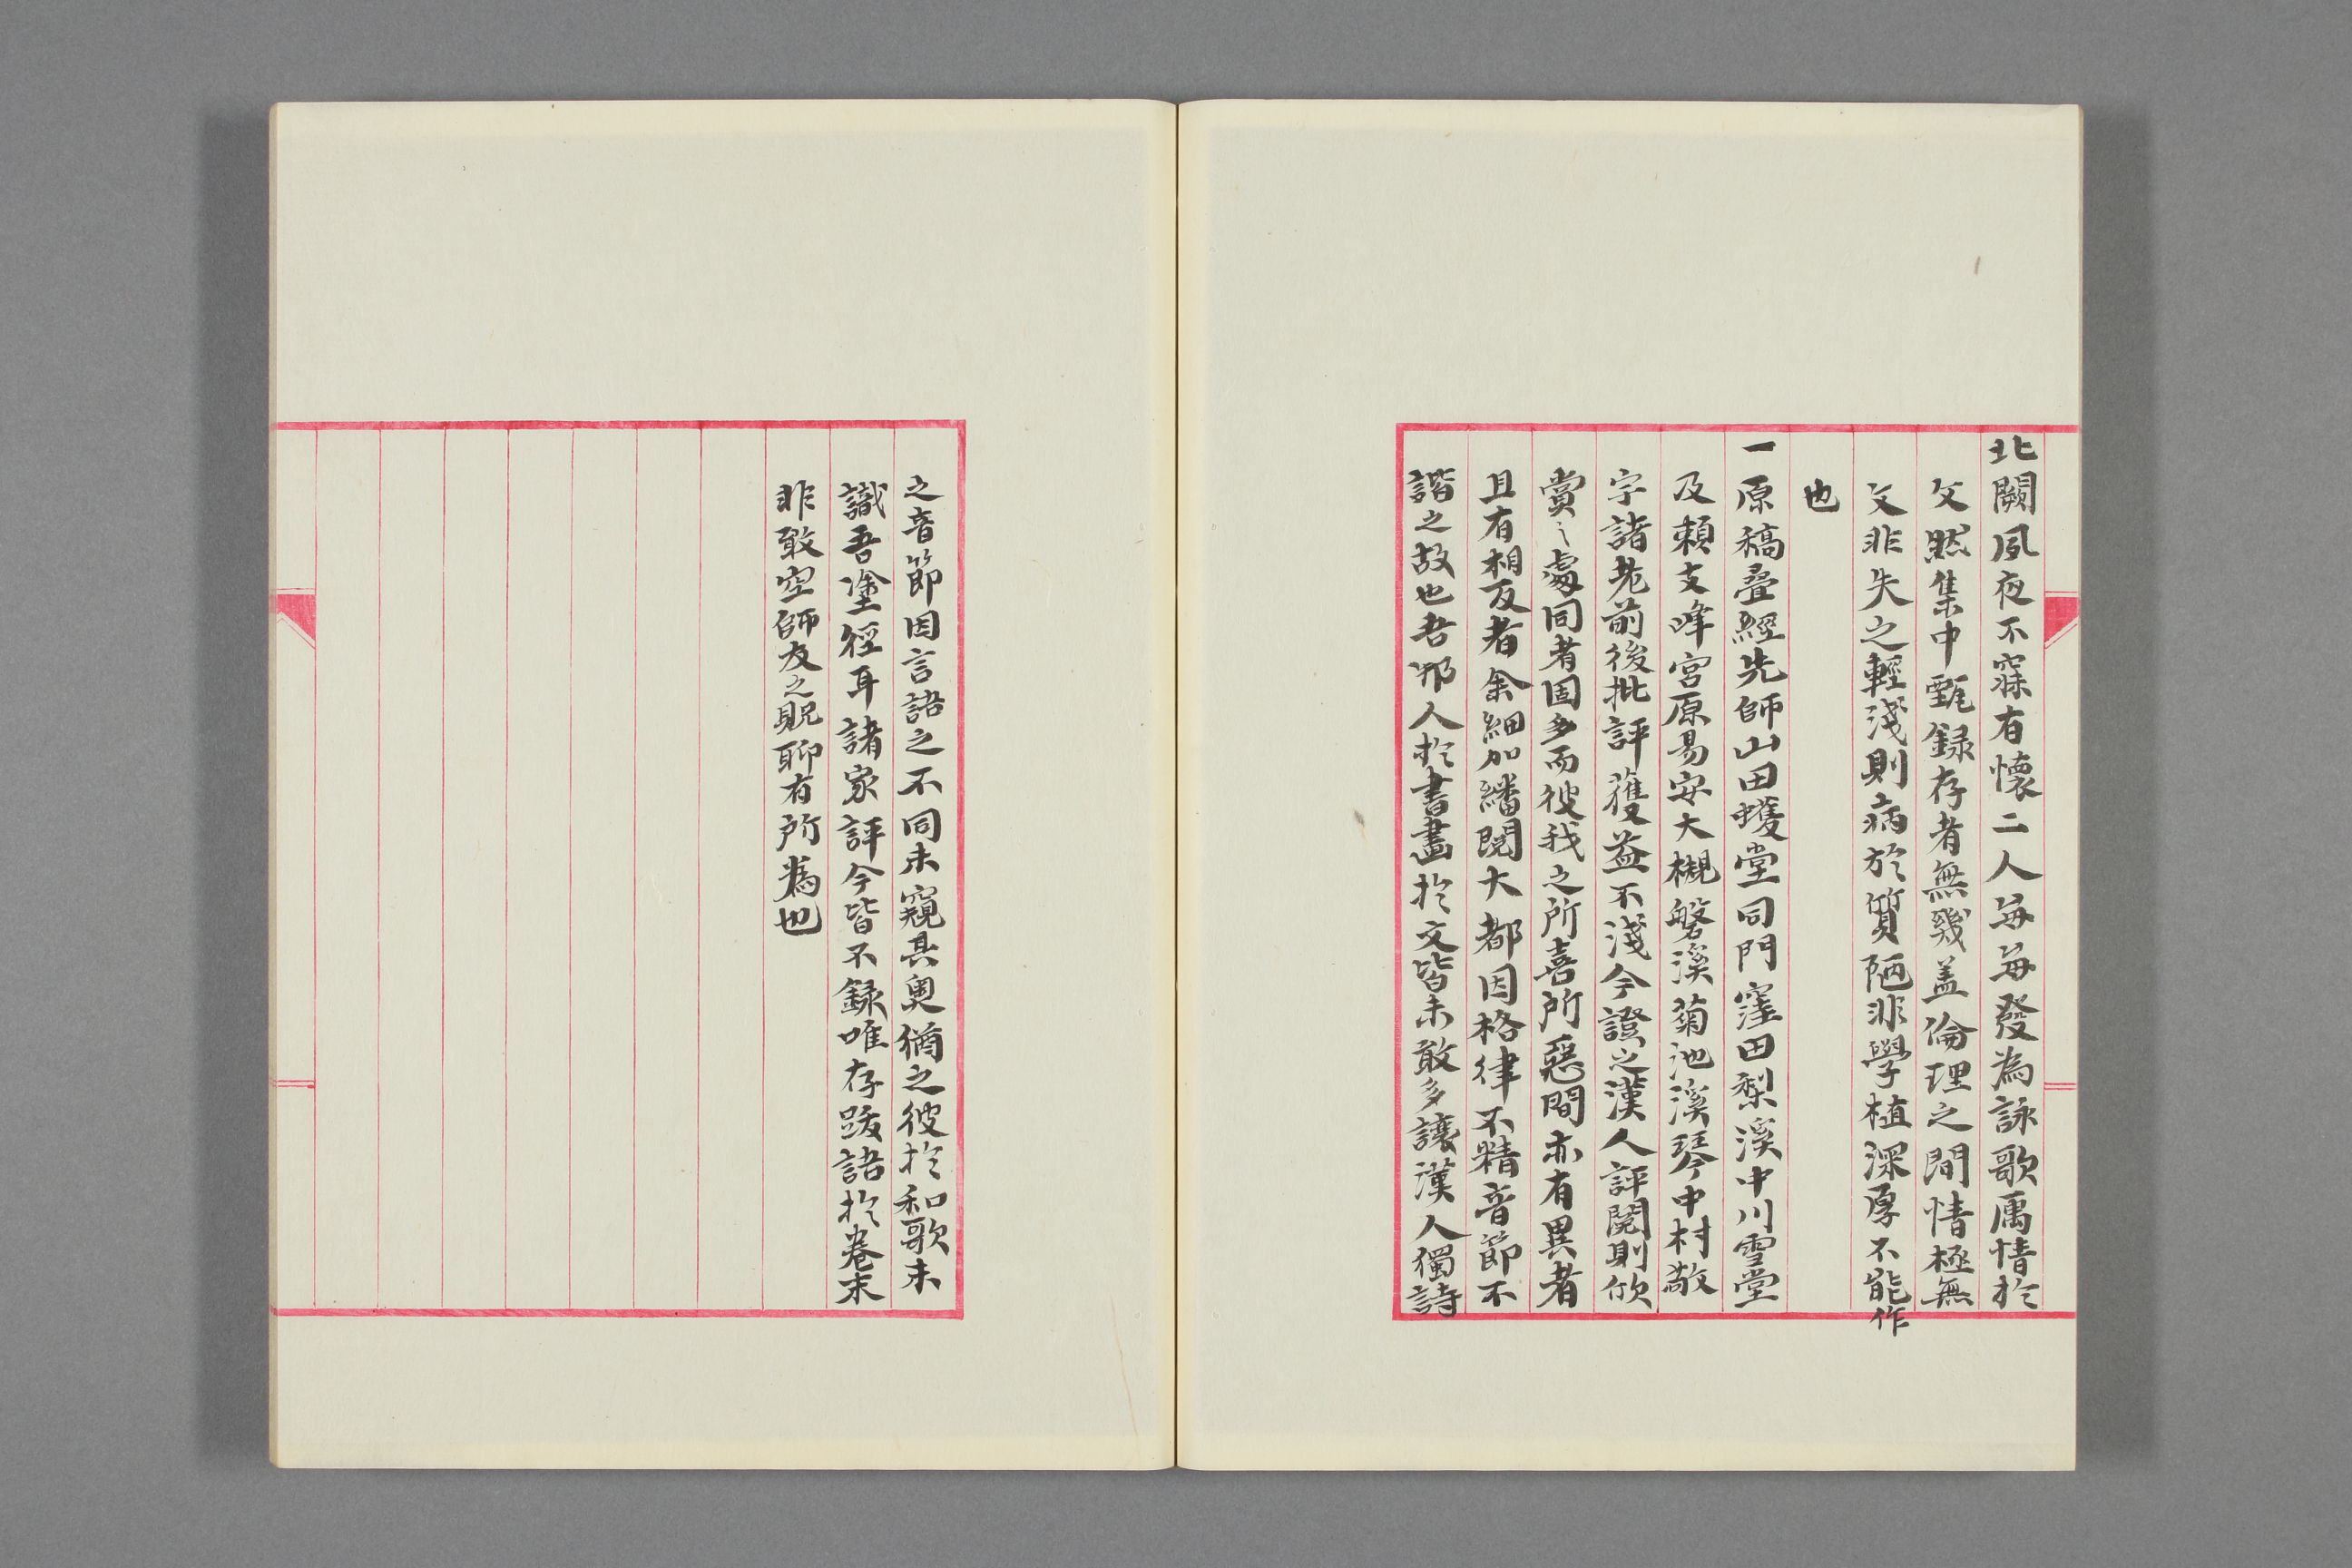 北闕夙夜不寐有懷二人每每發為詠歌厲情於
文然集中甄録存者無幾盖倫理之間情極無
文非失之輕淺則病於質陋非學植深厚不能作
也
一原稿疊經先師山田蠖堂同門窪田梨溪中川雪堂
及頼支峰宮原易安大槻磐溪菊池溪琴中村敬
宇諸老前後批評獲益不淺今證之漢人評閲則欣
賞之處同者固多而彼我之所喜所惡間亦有異者
且有相反者余細加繙閲大都因格律不精音節不
諧之故也吾邦人於書畫於文皆未敢多讓漢人獨詩
之音節因言語之不同未窺其奥猶之彼於和歌未
識吾塗徑耳諸家評今皆不録唯存跋語於卷末
非敢空師友之貺聊有所為也